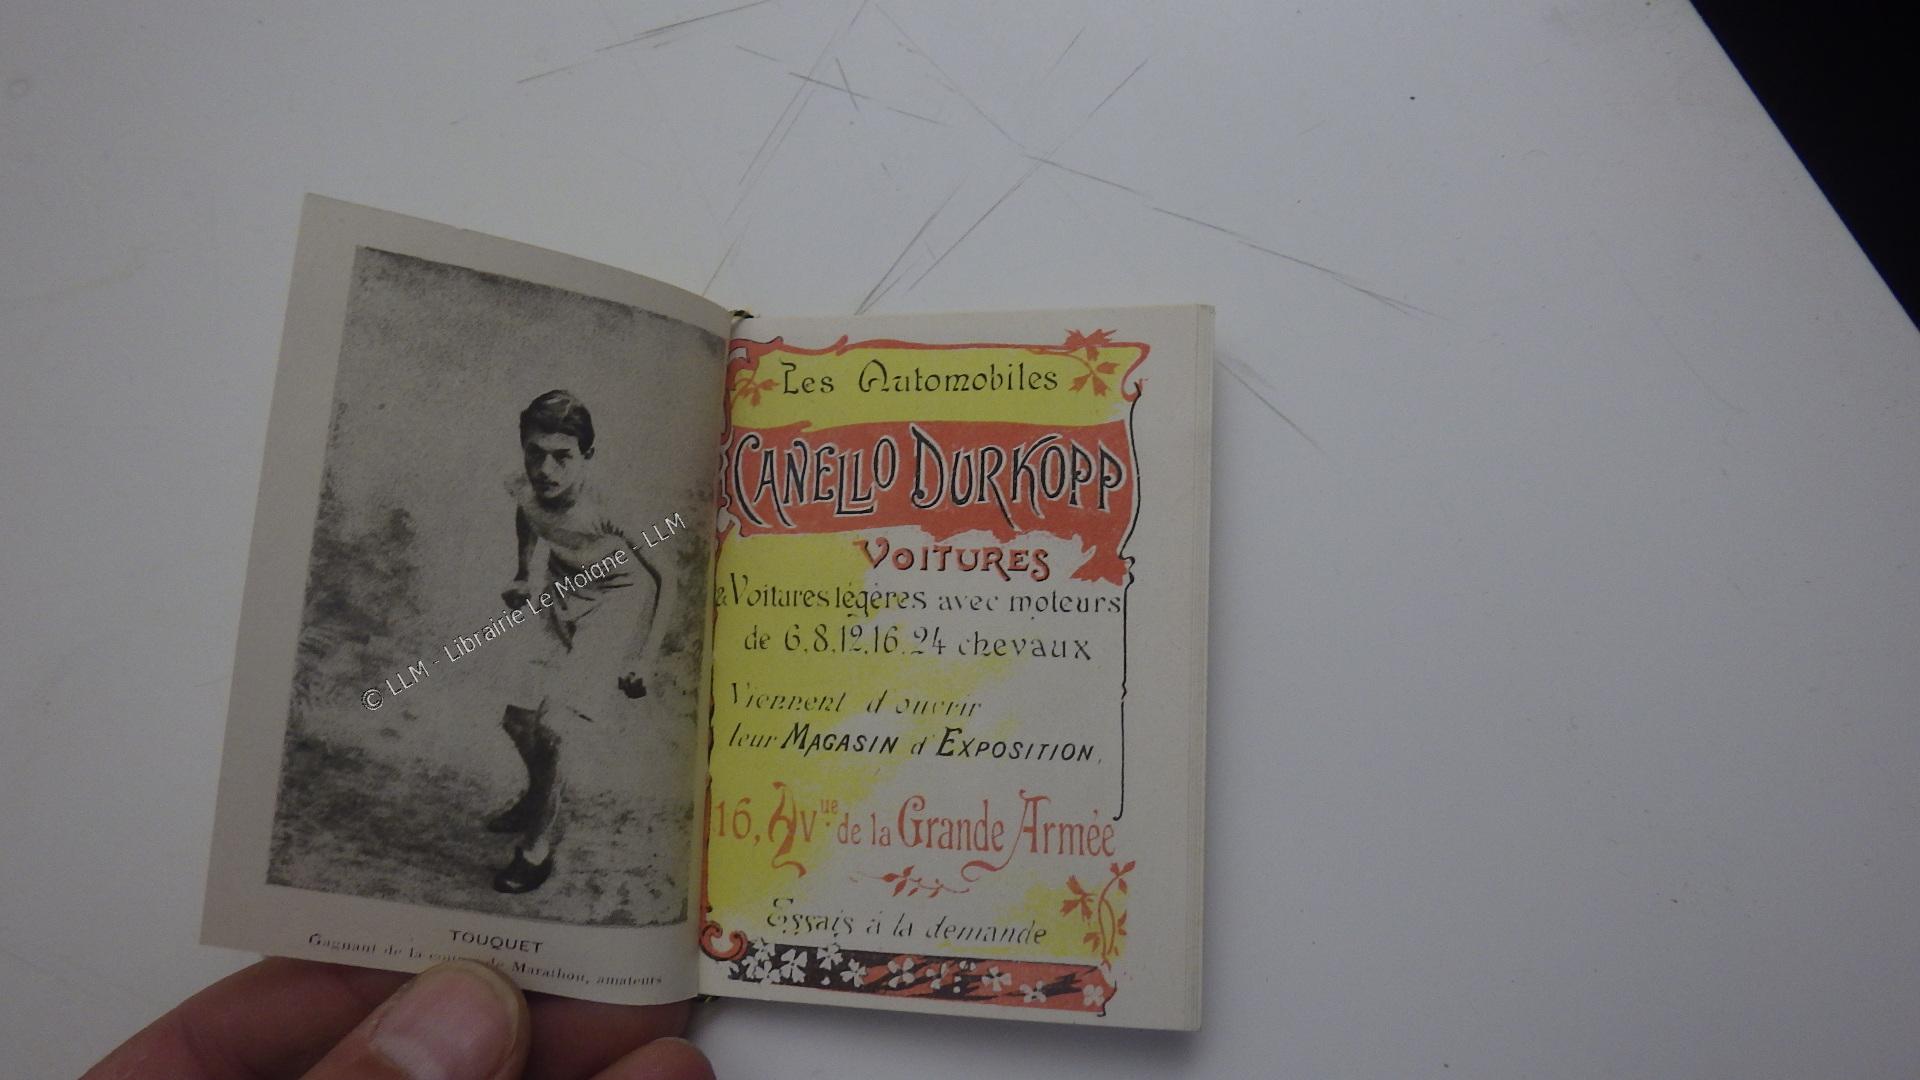 TOUQUET
Gagnant de la course de Marathon, amateurs
© LLM - Librairie Le Moigne - LLM
Les Automobiles
CANELLO DURKOPP
VOITURES
& Voitures légères avec moteurs
de 6, 8, 12, 16, 24 chevaux
Viennent d'ouvrir
leur MAGASIN d'EXPOSITION,
16, Avue de la Grande Armée
Essais à la demande